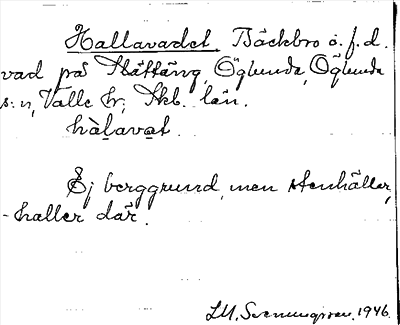 Hallavadet. Bäckbro ö. f. d.
vad på Slättäng, Öglunda, Öglunda
s:n, Valle hr; Skb. län.
hàlavat.
Ej berggrund, men stenhällar,
-hallar där.
LM. Svenungsson. 1946.